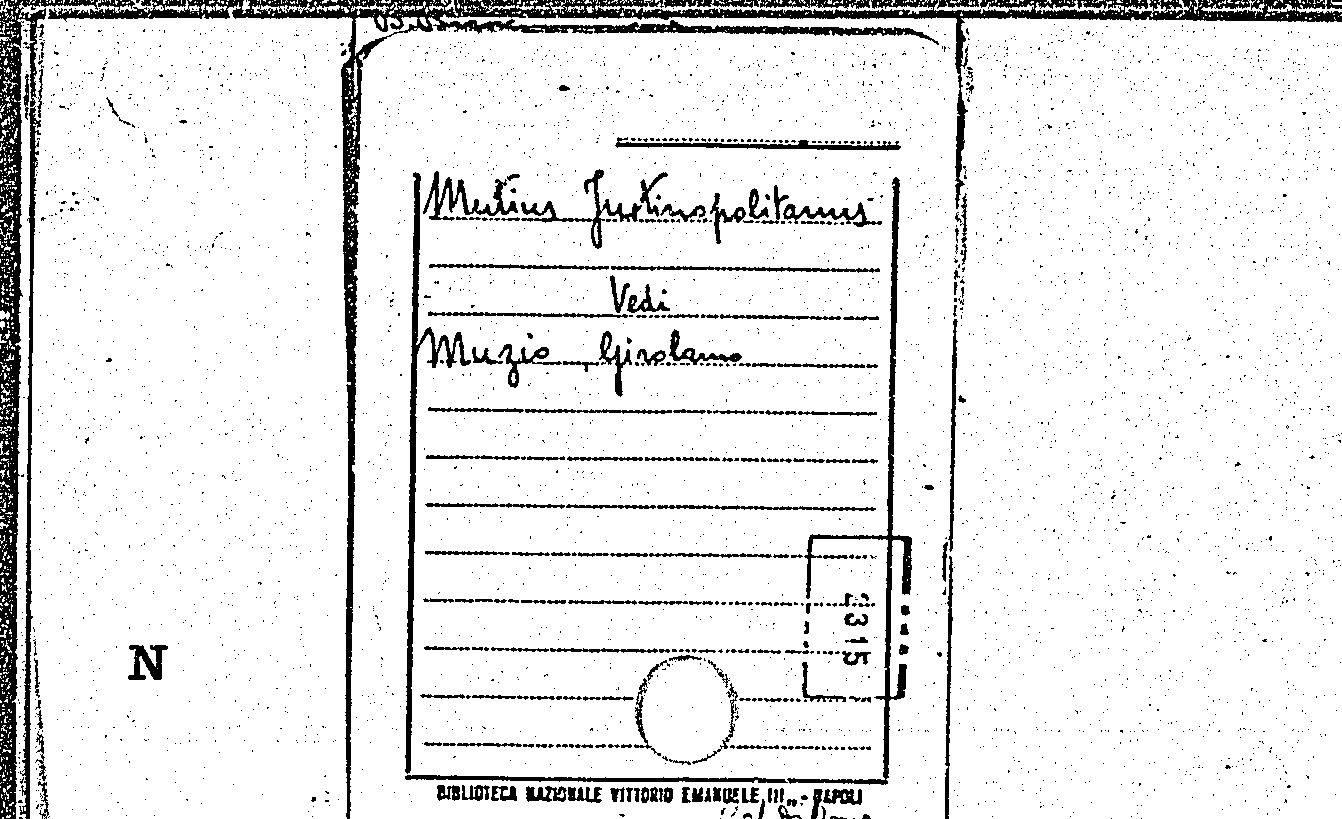 Mutius Justinopolitanus
Vedi
Muzio, Girolamo
2315
N
BIBLIOTECA NAZIONALE VITTORIO EMANUELE III. - NAPOLI